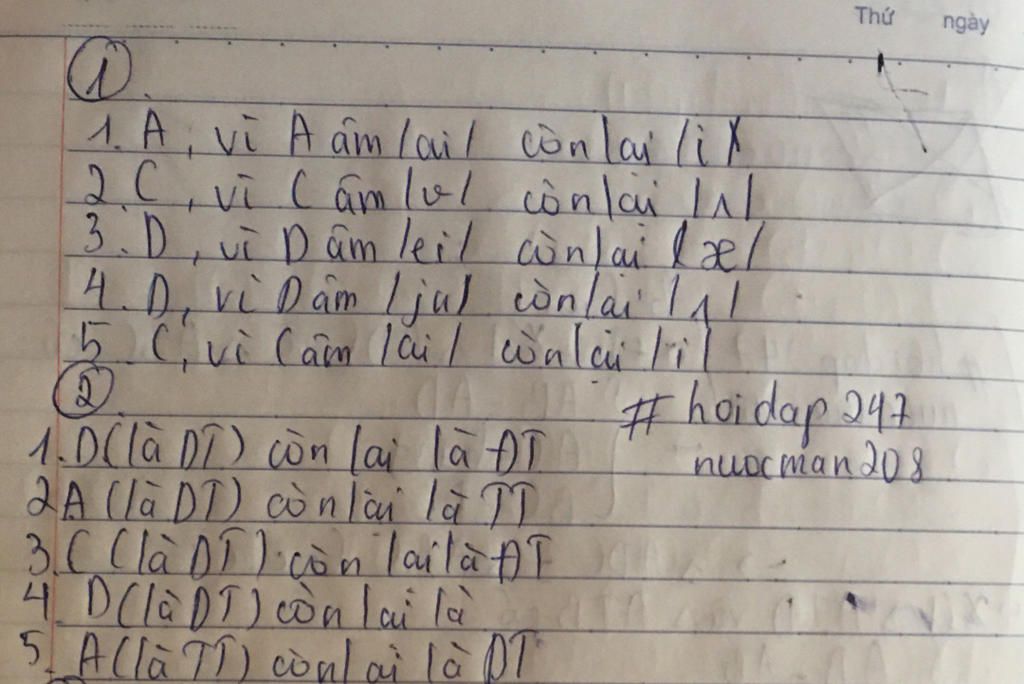 Thứ ngày
①
1. A, vì A âm /ai/ còn lại /i/
2. C, vì C âm /ʊ/ còn lại /ʌ/
3. D, vì D âm /ei/ còn lại /æ/
4. D, vì D âm /ju/ còn lại /ʌ/
5. C, vì C âm /ai/ còn lại /i/
②
# hoidap247
1. D (là DT) còn lại là ĐT
nuocman208
2 A (là DT) còn lại là TT
3. C (là DT) còn lại là ĐT
4 D (là DT) còn lại là
5. A (là TT) còn lại là DT